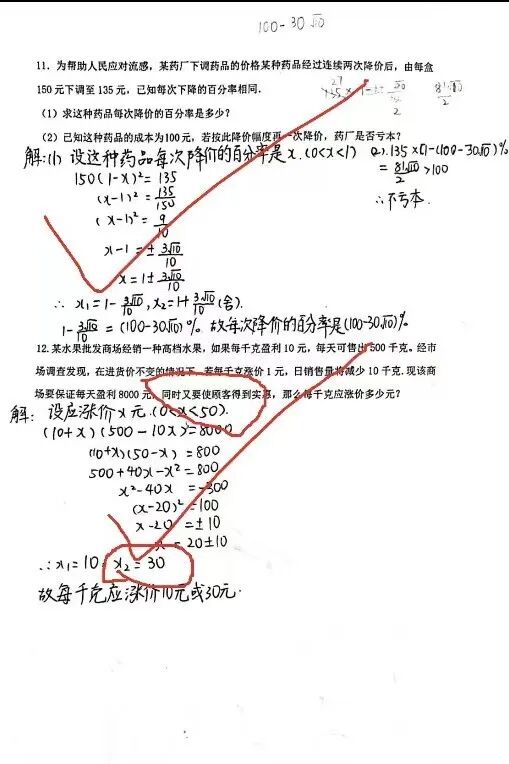 100-30√10
11. 为帮助人民应对流感，某药厂下调药品的价格某种药品经过连续两次降价后，由每盒
150元下调至 135元，已知每次下降的百分率相同.
(1) 求这种药品每次降价的百分率是多少?
(2) 已知这种药品的成本为100元，若按此降价幅度再一次降价，药厂是否亏本?
解:(1) 设这种药品每次降价的百分率是x.(0<x<1)
150(1-x)²=135
(x-1)²=135/150
(x-1)²=9/10
x-1=±3√10/10
x=1±3√10/10
∴ x₁=1-3√10/10, x₂=1+3√10/10(舍).
1-3√10/10=(100-30√10)%. 故每次降价的百分率是(100-30√10)%
(2).135×[1-(100-30√10)%
=81√10/2>100
∴不亏本.
27
135×
81√10/2
12. 某水果批发商场经销一种高档水果，如果每千克盈利10元，每天可售出500千克。经市
场调查发现，在进货价不变的情况下，若每千克涨价1元，日销售量将减少10千克. 现该商
场要保证每天盈利8000元，同时又要使顾客得到实惠，那么每千克应涨价多少元?
解: 设应涨价x元.(0<x<50).
(10+x)(500-10x)=8000
(10+x)(50-x)=800
500+40x-x²=800
x²-40x=-300
(x-20)²=100
x-20=±10
x=20±10
∴x₁=10 x₂=30
故每千克应涨价10元或30元.